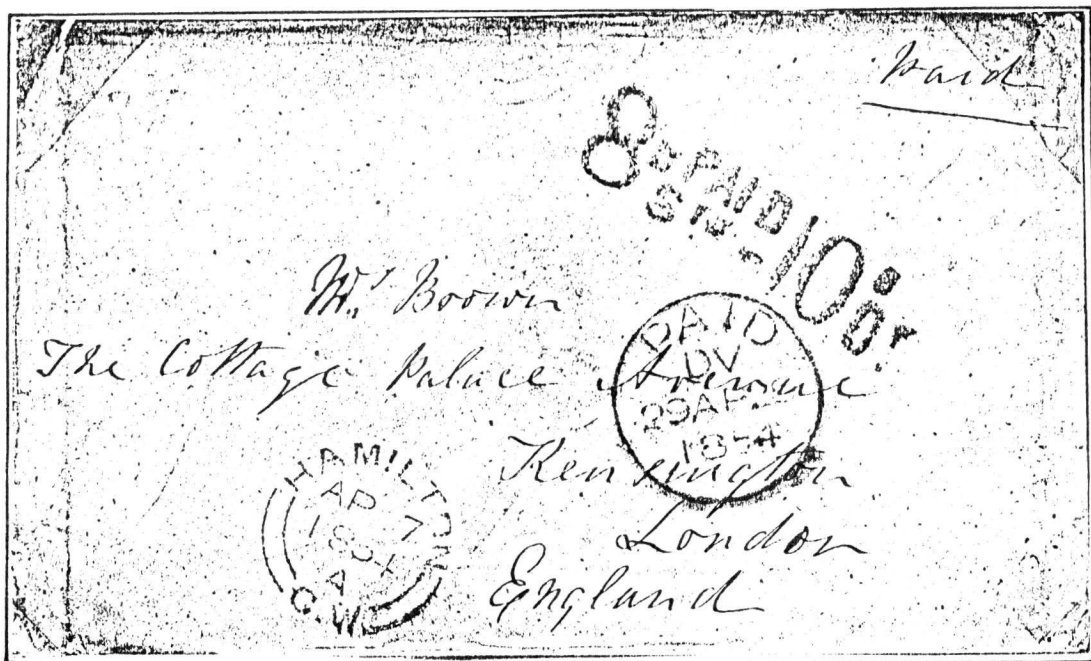 Paid
8D PAID
STG - 10D Cy
Mrs Brown
The Cottage Palace Avenue
Kensington
London
England
PAID
DV
29AP
1854
HAMILTON
AP 7
1854
A
C.W.